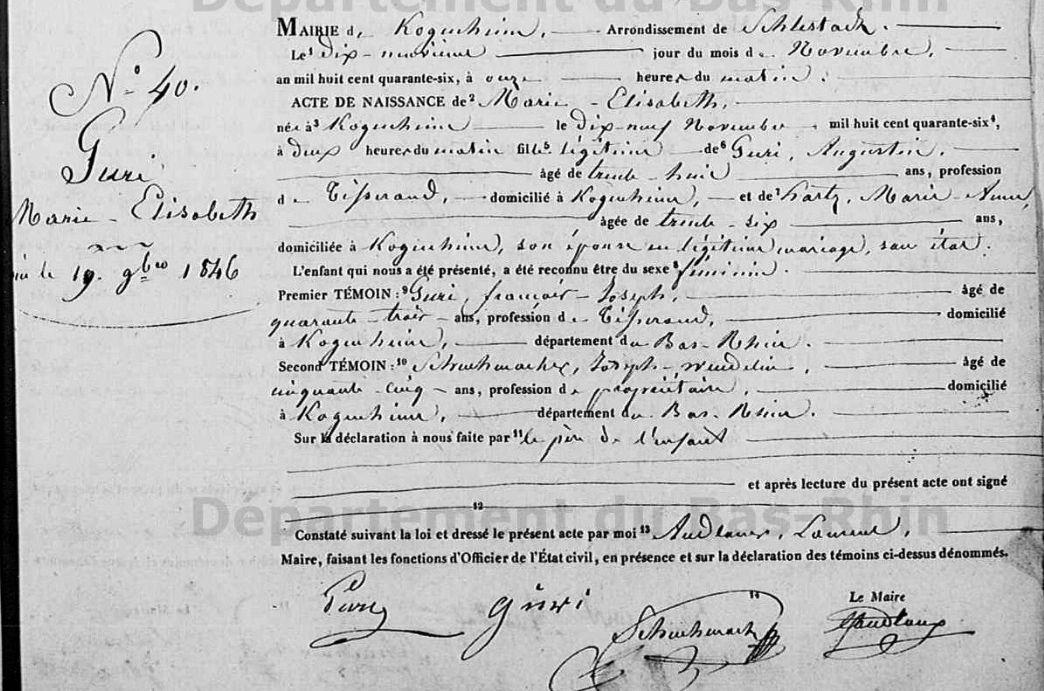 Département du Bas-Rhin
MAIRIE de Kogenheim, Arrondissement de Schlestadt.
Le¹ dix-neuvième jour du mois de Novembre,
an mil huit cent quarante-six, à onze heures du matin.
ACTE DE NAISSANCE de² Marie-Elisabeth,
née à³ Kogenheim le dix-neuf Novembre mil huit cent quarante-six⁴,
à deux heures du matin fille⁵ légitime de⁶ Guri, Augustin,
âgé de trente-huit ans, profession
de Tisserand, domicilié à Kogenheim, et de⁷ Hartz, Marie-Anne,
âgée de trente-six ans,
domiciliée à Kogenheim, son épouse en légitime mariage, sans état.
L'enfant qui nous a été présenté, a été reconnu être du sexe⁸ féminin.
Premier TÉMOIN :⁹ Guri, françois-Joseph, âgé de
quarante-trois ans, profession de Tisserand, domicilié
à Kogenheim, département du Bas-Rhin.
Second TÉMOIN :¹⁰ Schuhmacher, Joseph-wendelin, âgé de
cinquante-cinq ans, profession de propriétaire, domicilié
à Kogenheim, département du Bas-Rhin.
Sur la déclaration à nous faite par¹¹ le père de l'enfant
et après lecture du présent acte ont signé
12
Département du Bas-Rhin
Constaté suivant la loi et dressé le présent acte par moi¹³ Audlauer, Laurent,
Maire, faisant les fonctions d'Officier de l'État civil, en présence et sur la déclaration des témoins ci-dessus dénommés.
14
Le Maire
güri
Schuhmacher
Audlauer
N° 40.
Guri
Marie-Elisabeth
le 19. 9bre 1846